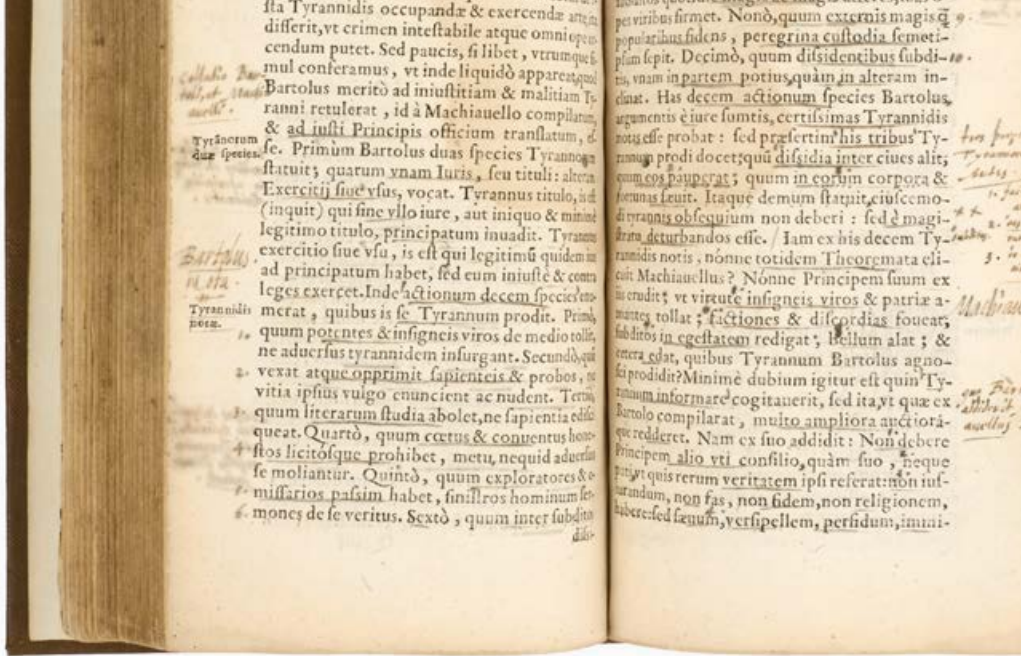 sta Tyrannidis occupandæ & exercendæ
differit, vt crimen intestabile atque omni ope
cendum putet. Sed paucis, si libet, vtrumque si-
mul conferamus, vt inde liquidò appareat, quod
Bartolus meritò ad iniustitiam & malitiam Ty-
ranni retulerat, id à Machiauello compilatum,
& ad iusti Principis officium translatum, es-
se. Primùm Bartolus duas species Tyrannorum
statuit; quarum vnam Iuris, seu tituli: alteram
Exercitij siue vsus, vocat. Tyrannus titulo, is est
(inquit) qui sine vllo iure, aut iniquo & minimè
legitimo titulo, principatum inuadit. Tyrannus
exercitio siue vsu, is est qui legitimũ quidem ius
ad principatum habet, sed eum iniustè & contra
leges exercet. Inde actionum decem species enu-
merat, quibus is se Tyrannum prodit. Primò,
quum potentes & insigneis viros de medio tollit,
ne aduersus tyrannidem insurgant. Secundò, qui
vexat atque opprimit sapienteis & probos, ne
vitia ipsius vulgo enuncient ac nudent. Tertiò,
quum literarum studia abolet, ne sapientia edisci
queat. Quartò, quum cœtus & conuentus hone-
stos licitósque prohibet, metu, nequid aduersus
se moliantur. Quintò, quum exploratores & e-
missarios passim habet, sinistros hominum ser-
mones de se veritus. Sextò, quum inter subditos
dissi-
Tyrãnorum
duæ species.
Bartolus
Tyrannidis
notæ.
1.
2.
3.
4.
5.
6.
pes viribus firmet. Nonò, quum externis magis q̃
popularibus fidens, peregrina custodia semeti-
psum sepit. Decimò, quum dissidentibus subdi-
tis, vnam in partem potius, quàm in alteram in-
clinat. Has decem actionum species Bartolus,
argumentis è iure sumtis, certissimas Tyrannidis
notas esse probat: sed præsertim his tribus Ty-
rannum prodi docet; quũ dissidia inter ciues alit;
quum eos pauperat; quum in eorum corpora &
fortunas sæuit. Itaque demum statuit, eiuscemo-
di tyrannis obsequium non deberi: sed è magi-
stratu deturbandos esse. / Iam ex his decem Ty-
rannidis notis, nónne totidem Theoremata eli-
cuit Machiauellus? Nónne Principem suum ex
iis erudit; vt virtute insigneis viros & patriæ a-
mantes tollat; factiones & discordias foueat;
subditos in egestatem redigat; bellum alat; &
cetera edat, quibus Tyrannum Bartolus agno-
sci prodidit? Minimè dubium igitur est quin Ty-
rannum informare cogitauerit, sed ita, vt quæ ex
Bartolo compilarat, multo ampliora auctiorá-
que redderet. Nam ex suo addidit: Non debere
Principem alio vti consilio, quàm suo, neque
pati, vt quis rerum veritatem ipsi referat: non ius-
iurandum, non fas, non fidem, non religionem,
habere: sed sæuum, versipellem, perfidum, immi-
9.
10.